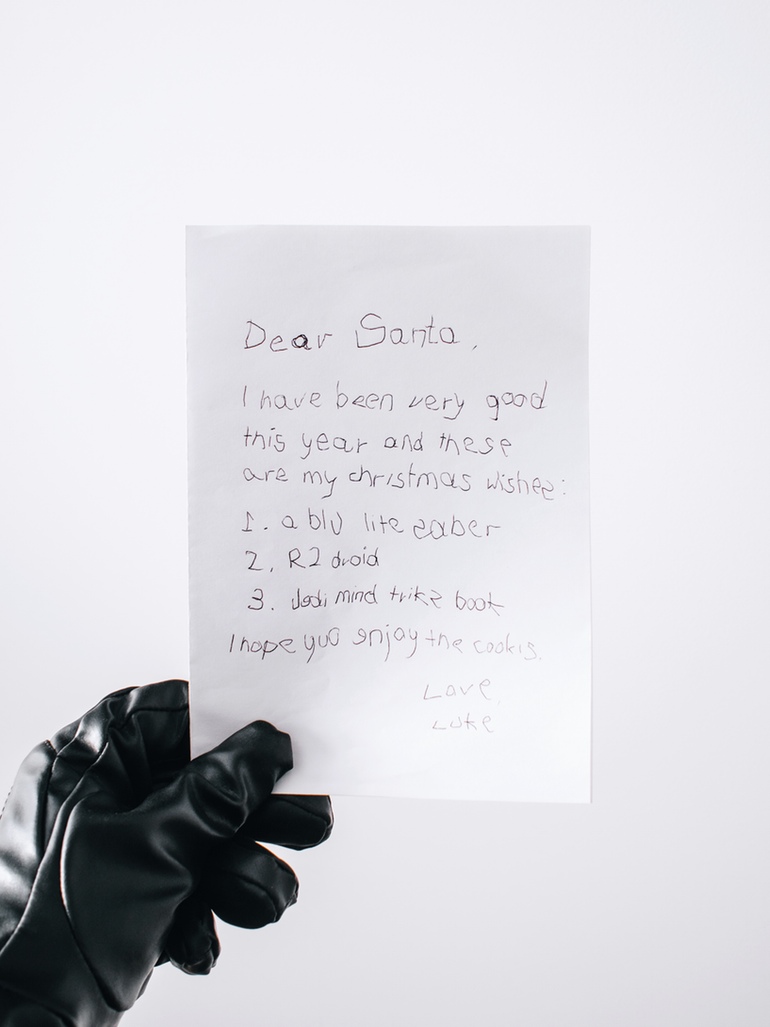 Dear Santa,
I have been very good
this year and these
are my christmas wishes:
1. a blu lite saber
2. R2 droid
3. Jedi mind triks book
I hope yuo enjoy the cookis.
Love,
Luke